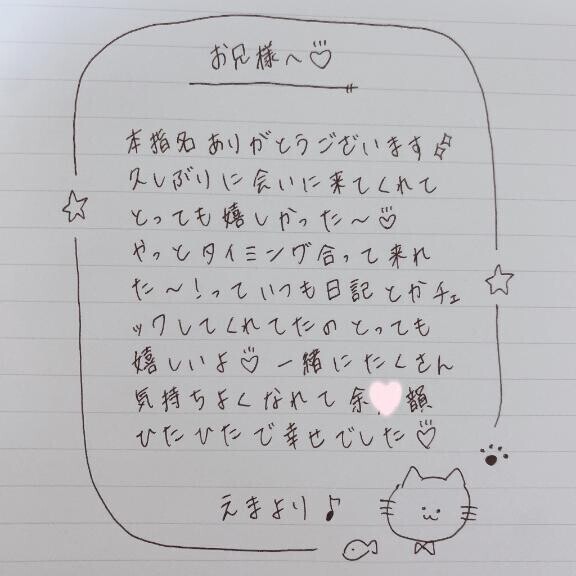 お兄様へ♡
本指名ありがとうございます
久しぶりに会いに来てくれて
とっても嬉しかった〜♡
やっとタイミング合って来れ
た〜！っていつも日記とかチェ
ックしてくれてたのとっても
嬉しいよ♡一緒にたくさん
気持ちよくなれて余韻
ひたひたで幸せでした♡
えまより♪